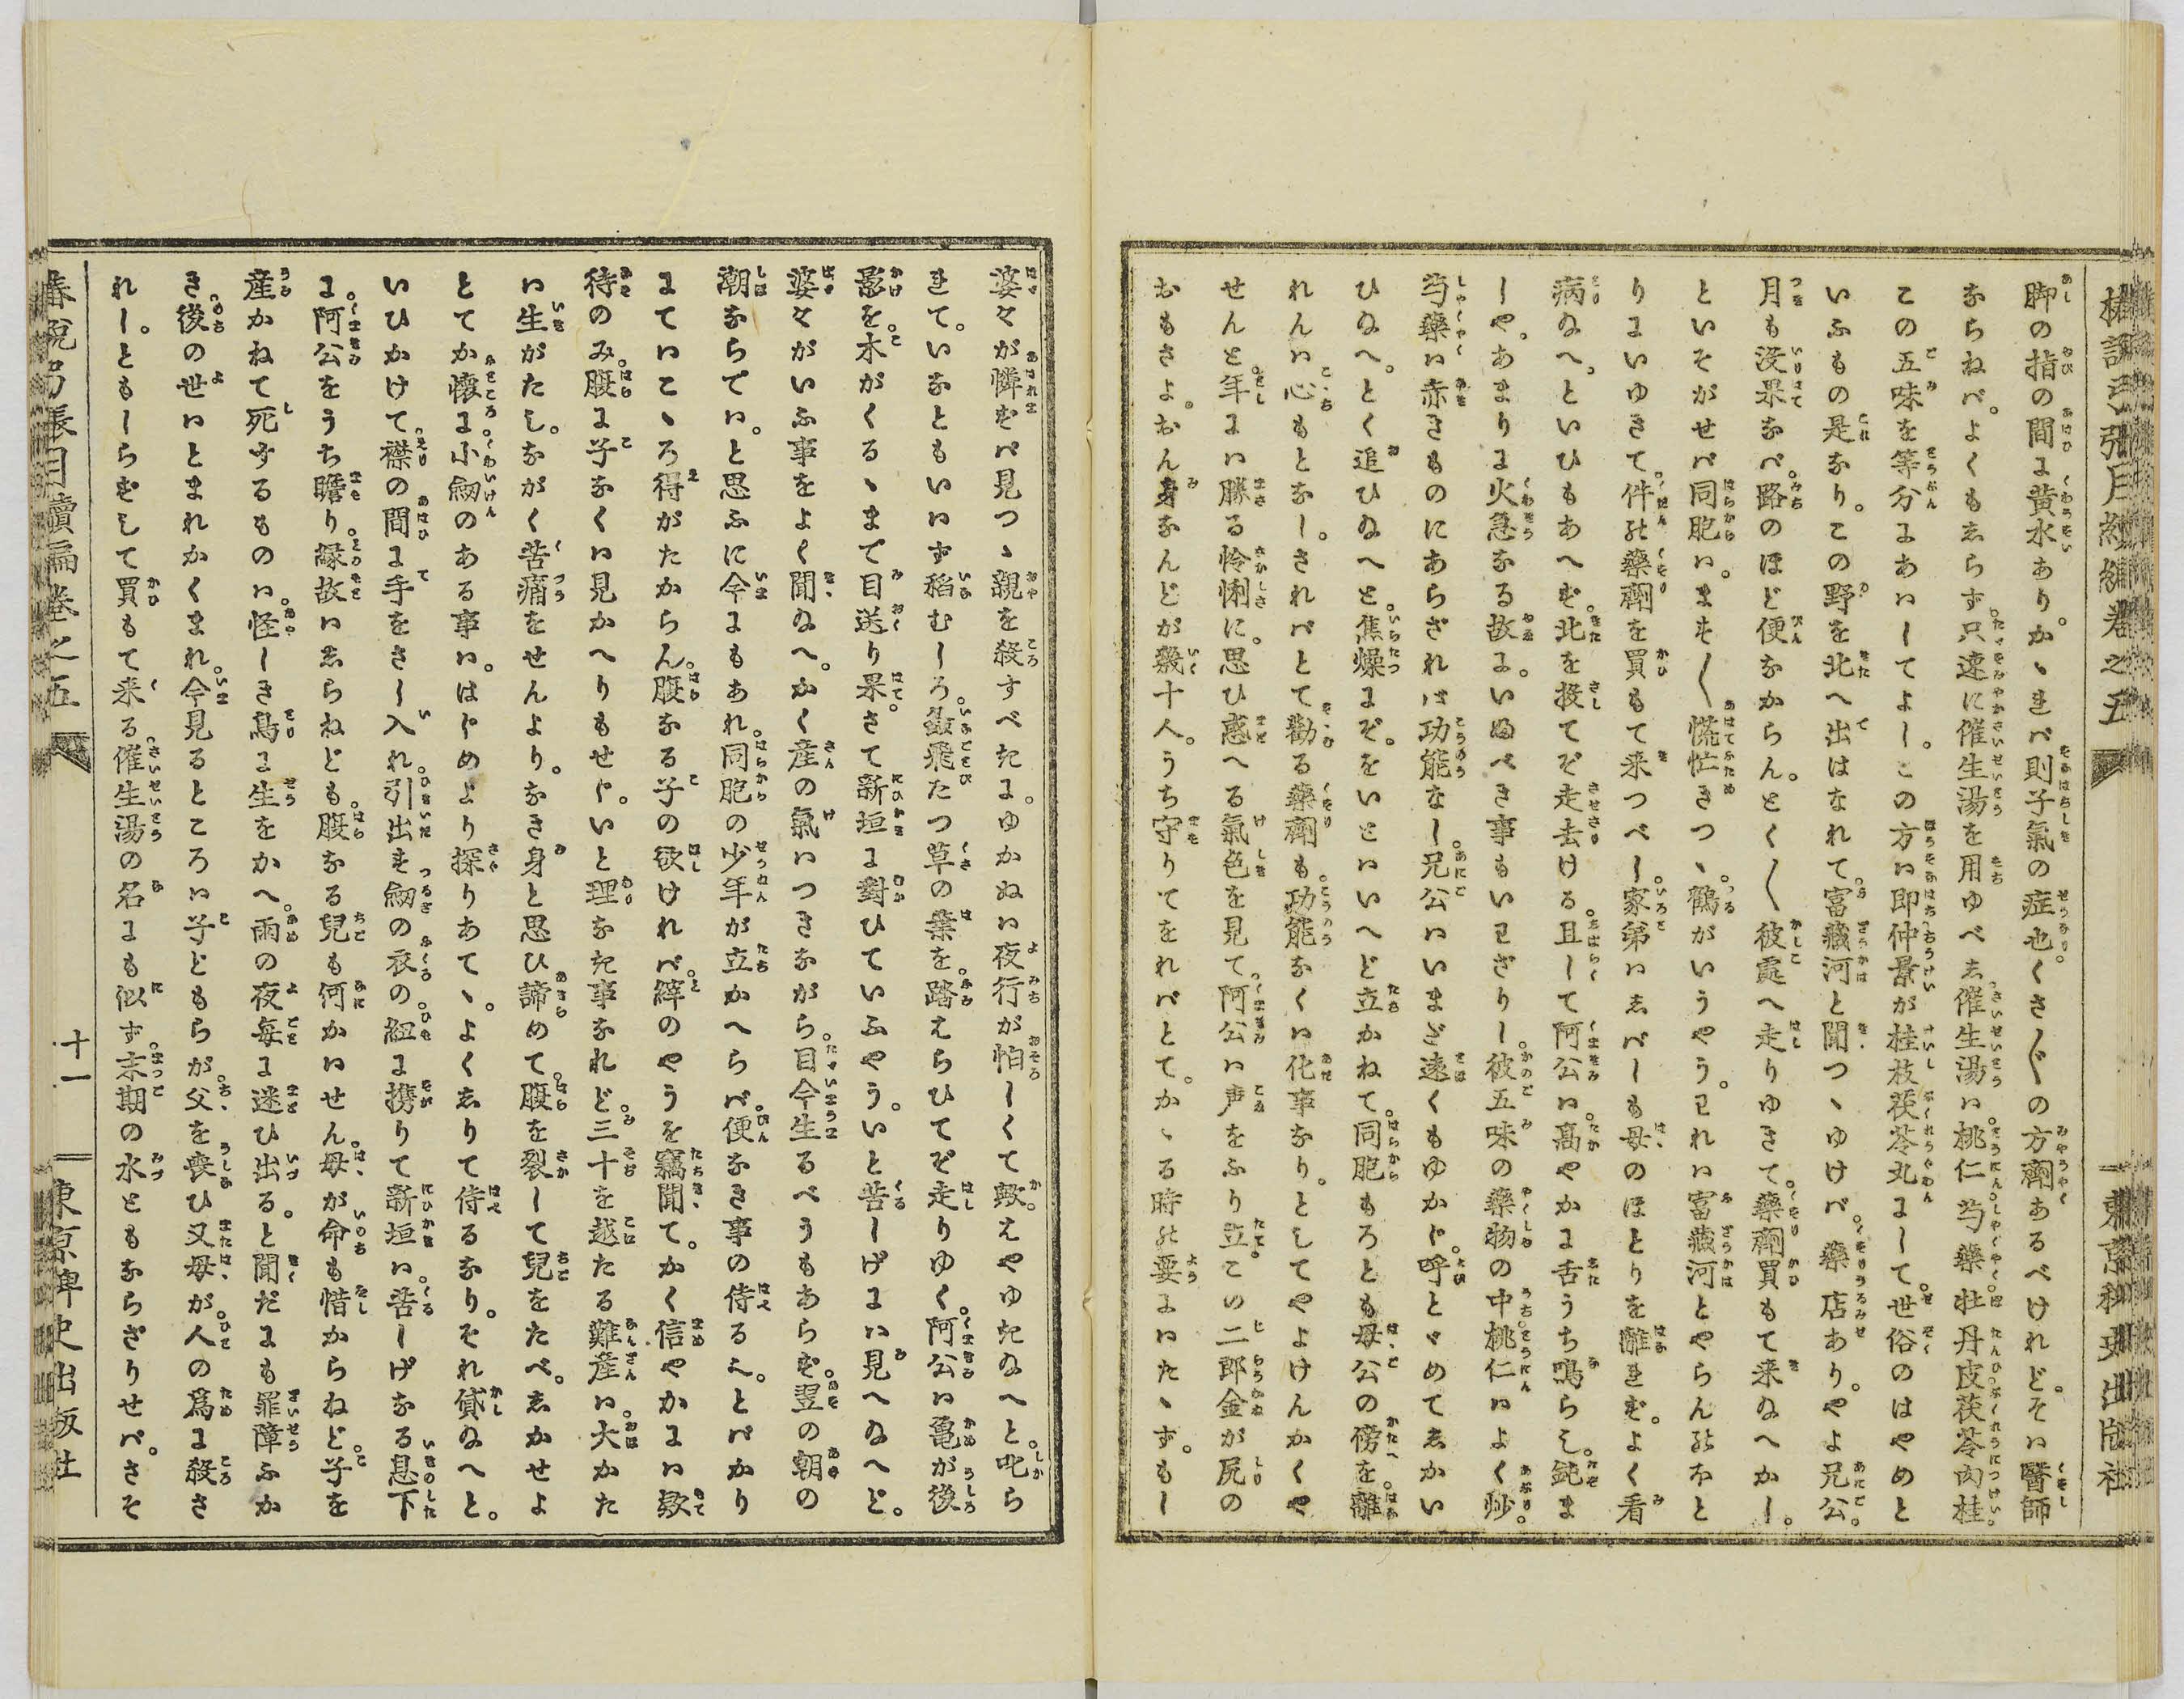 脚の指の間に黄水あり。かゝれば則子氣の症也。くさ〴〵の方劑あるべけれど。そは醫師
ならねば。よくもしらず。只速に催生湯を用ゆべし。催生湯は。桃仁。芍藥。牡丹皮。茯苓。肉桂。
この五味を等分にあはしてよし。この方は即仲景が桂枝茯苓丸にして。世俗のはやめと
いふもの是なり。この野を北へ出はなれて。富藏河と聞つゝゆけば。藥店あり。やよ兄公。
月も没果なば。路のほど便なからん。とく〳〵彼處へ走りゆきて。藥劑買もて来給へかし。
といそがせば同胞は。ます〳〵慌忙きつゝ。鶴がいうやう。われは富藏河とやらんにおと
りにいゆきて。件の藥劑を買もて来つべし。家弟はしばしも母のほとりを離れず。よく看
病給へ。といひもあへず。北を投てぞ走去ける。且して阿公は。高やかに舌うち鳴らし。鈍ま
しや。あまりに火急なる故に。いふべき事もいはざりし。彼五味の藥物の中。桃仁はよく炒。
芍藥は赤きものにあらざれば功能なし。兄公はいまだ遠くもゆかじ。呼とゞめてしかい
ひ給へ。とく追ひ給へと。焦燥にぞ。をいとはいへど立かねて。同胞もろとも母公の傍を。離
れんは心もとなし。さればとて勸る藥劑も。功能なくは化事なり。としてやよけんかくや
せんと。年には勝る怜悧に。思ひ惑へる氣色を見て。阿公は声をふり立。こは二郎金が尻の
おもさよ。おん身なんどが幾十人。うち守りてをればとて。かゝる時の要にはたゝず。もし
婆々が憐ずば見つゝ親を殺すべきに。ゆかぬは夜行が怕しくて歟。えやゆき給へと。叱ら
れて。いなともいはず稲むしろ。鼓飛たつ草の葉を。踏えらひてぞ走りゆく。阿公は亀が後
影を。木がくるゝまで目送り果。さて新垣に對ひていふやう。いと苦しげには見へ給へど。
婆々がいふ事をよく聞給へ。かく産の氣はつきながら。目今生るべうもあらず。翌の朝の
潮ならでは。と思ふに今にもあれ。同胞の少年が立かへらば。便なき事の侍るに。とばかり
にてはこゝろ得がたからん。腹なる子の欲ければ。縡のやうを竊聞て。かく信やかには款
待のみ。腹に子なくは見かへりもせじ。いと理なき事なれど。三十を越たる難産は。大かた
は生がたし。ながく苦痛をせんより。なき身と思ひ諦めて。腹を裂して兒をたべ。しかせよ
とてか懐に。小劔のある事は。はじめより探りあて。よくしりて侍るなり。それ貸給へと。
いひかけて。襟の間に手をさし入れ。引出す劔の衣の。紐に携りて新垣は。苦しげなる息下
に。阿公をうち瞻り。縁故はしらねども。腹なる兒も何かはせん。母が命も惜からねど。子を
産かねて死するものは。怪しき鳥に生をかへ。雨の夜毎に迷ひ出る。と聞だにも罪障ふか
き。後の世はとまれかくまれ。今見るところは子どもらが。父を喪ひ又母が。人の爲に殺さ
れし。ともしらずして買もて来る。催生湯の名にも似ず。末期の水ともならざりせば。さぞ
椿説弓張月續編卷之五
東京稗史出版社
椿説弓張月續編卷之五
十一
東京稗史出版社